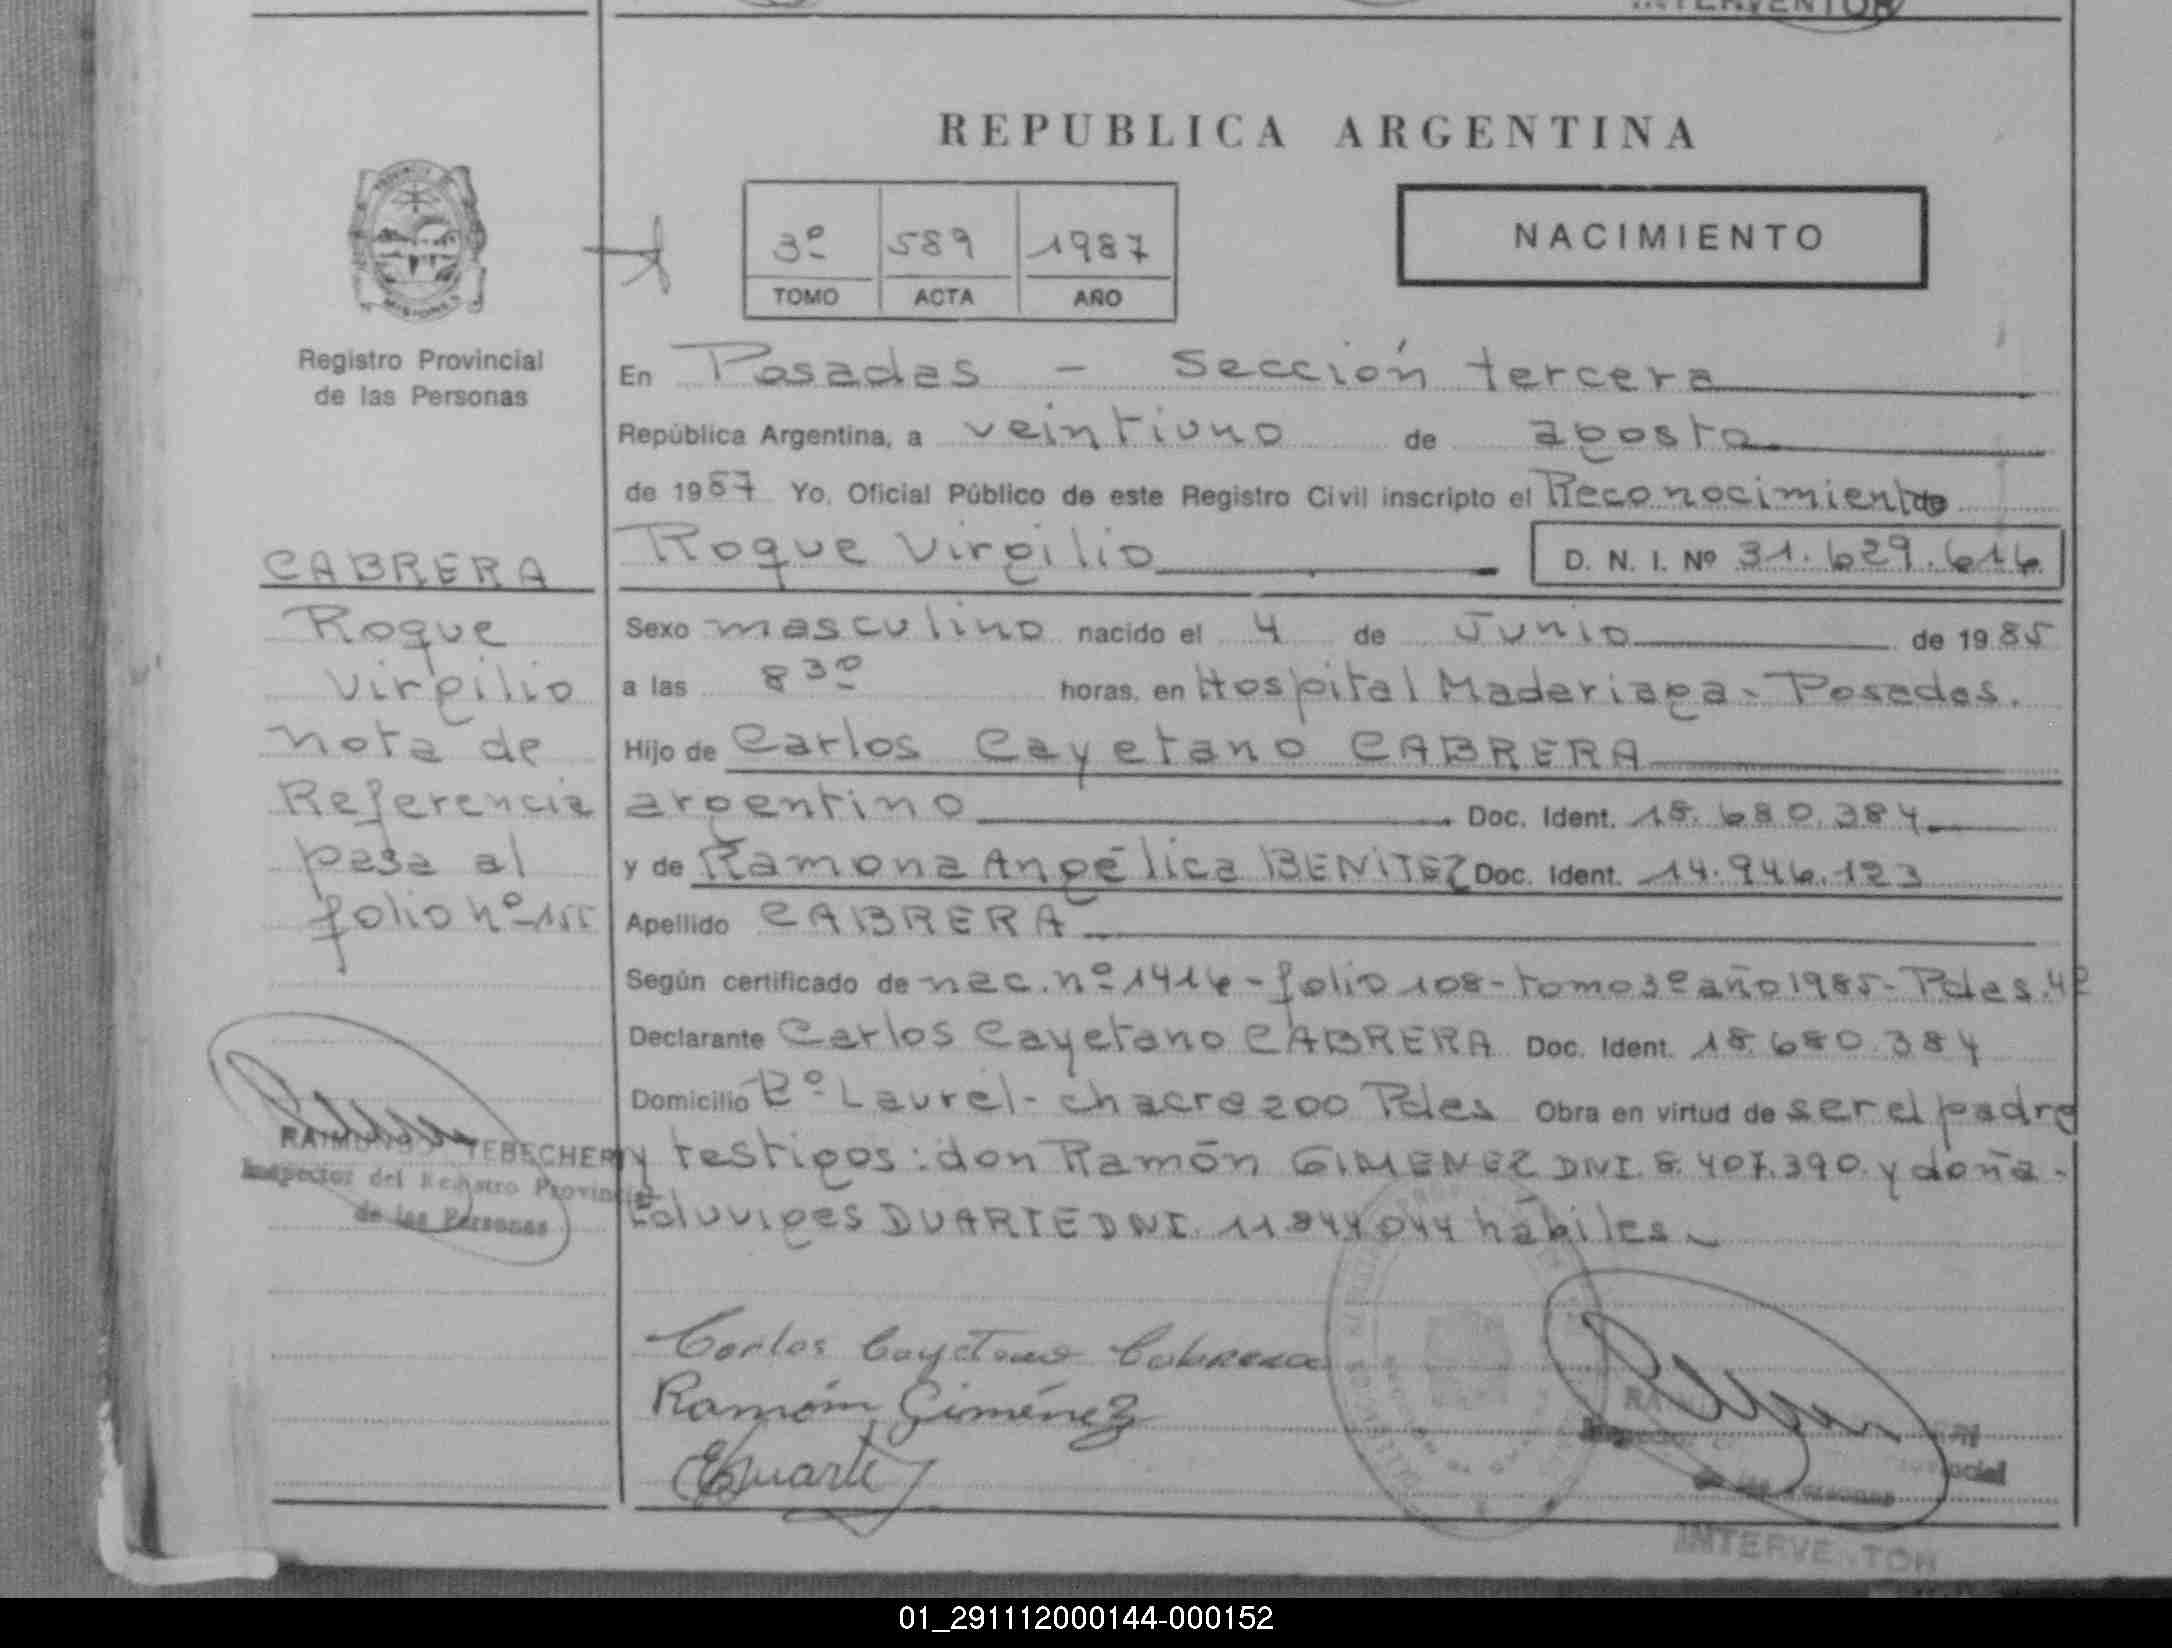 INTERVENTOR
REPUBLICA ARGENTINA
3º 589 1987
TOMO ACTA AÑO
NACIMIENTO
Registro Provincial
de las Personas
CABRERA
Roque
Virgilio
nota de
Referencia
pasa al
folio nº 155
RAIMUNDO TEBECHERY
Inspector del Registro Provincial
de las Personas
En Posadas - Sección tercera
República Argentina, a veintiuno de agosto
de 1987 Yo, Oficial Público de este Registro Civil inscripto el Reconocimiento
Roque Virgilio D. N. I. Nº 31.629.616
Sexo masculino nacido el 4 de Junio de 1985
a las 8 30 horas, en Hospital Madariaga - Posadas.
Hijo de Carlos Cayetano CABRERA
argentino Doc. Ident. 18.680.384
y de Ramona Angélica BENITEZ Doc. Ident. 14.946.123
Apellido CABRERA
Según certificado de nac. nº 1416 - folio 108 - tomo 3º año 1985 - Pdas. 4ª
Declarante Carlos Cayetano CABRERA Doc. Ident. 18.680.384
Domicilio Bº Laurel - chacra 200 Pdas Obra en virtud de ser el padre
y testigos: don Ramón GIMENEZ DNI. 8.407.390 y doña -
Eduviges DUARTE DNI. 11.844.044 hábiles.
Carlos Cayetano Cabrera
Ramón Giménez
EDuarte
INTERVENTOR
01_291112000144-000152